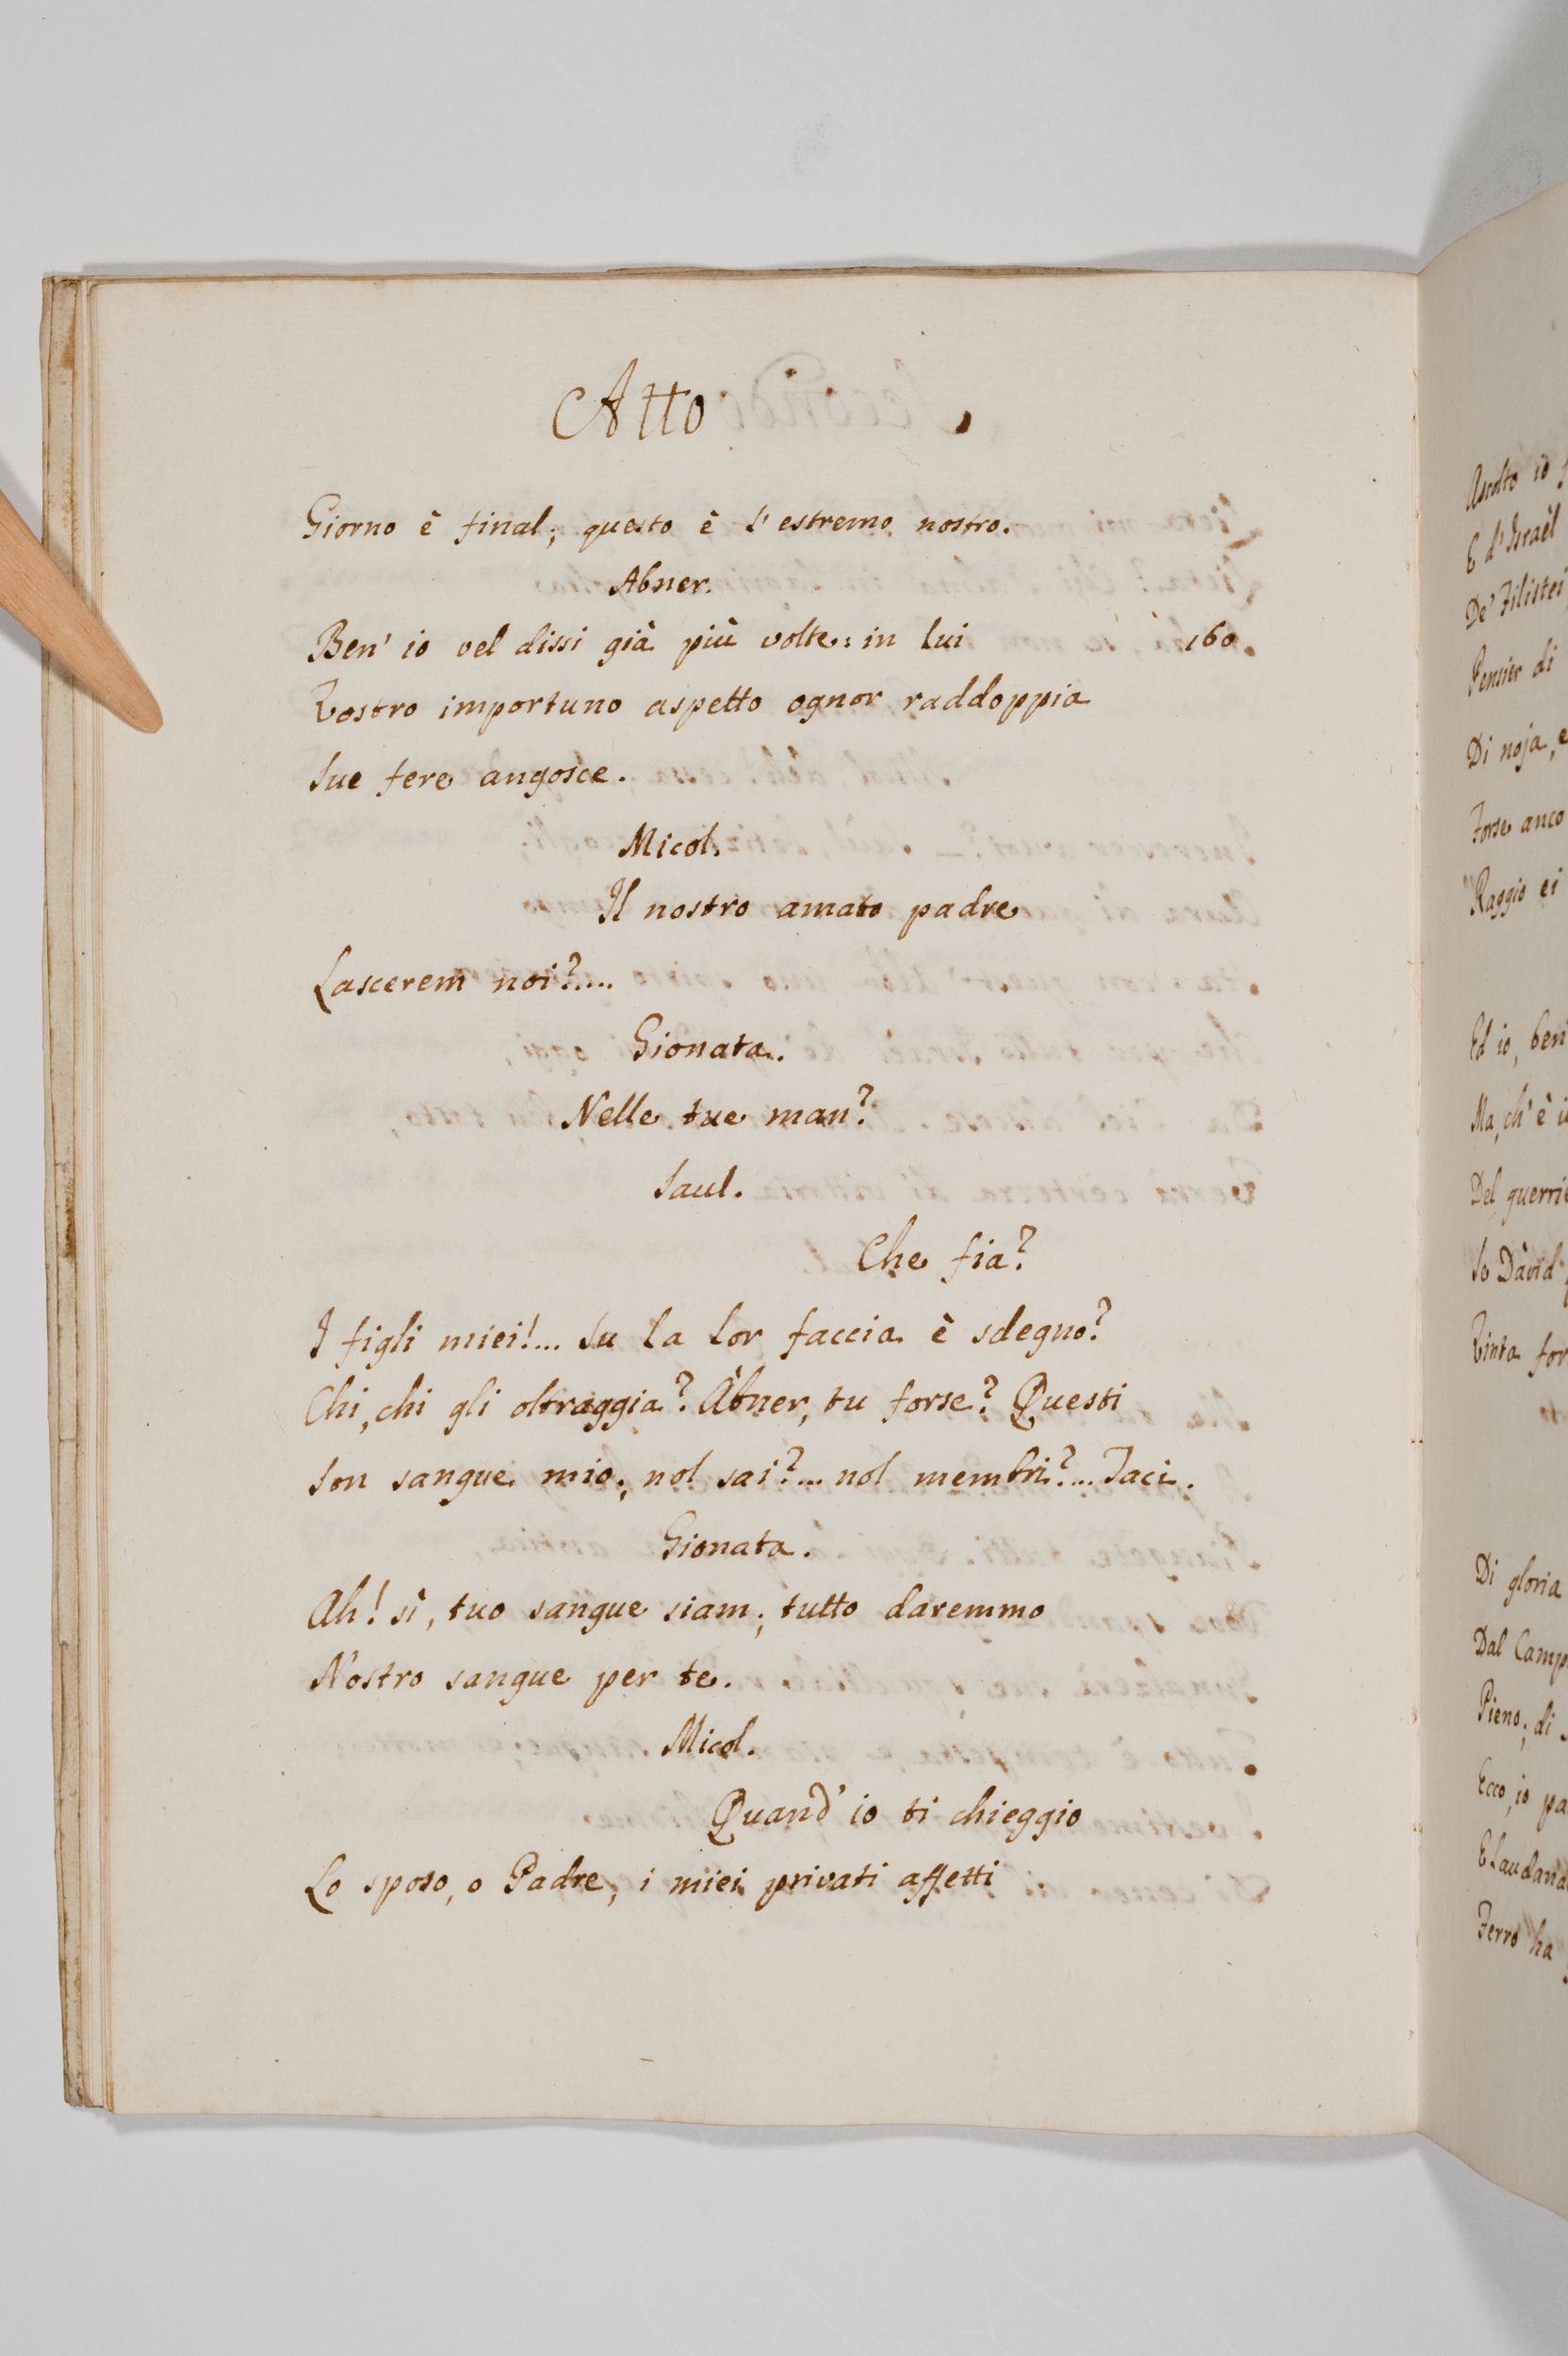 Atto
Giorno è final; questo è l'estremo nostro.
Abner.
Ben' io vel dissi già più volte: in lui 160.
Vostro importuno aspetto ognor raddoppia
Sue fere angosce.
Micol.
Il nostro amato padre
Lascerem noi?....
Gionata.
Nelle tue man?
Saul.
Che fia?
I figli miei!... Su la lor faccia è sdegno?
Chi, chi gli oltraggia? Àbner, tu forse? Questi
Son sangue mio; nol sai?... nol membri?... Taci.
Gionata.
Ah! sì, tuo sangue siam; tutto daremmo
Nostro sangue per te.
Micol.
Quand' io ti chieggio
Lo sposo, o Padre, i miei privati affetti
Ascolto io
E d'Israèl
De' Filistei
Pensier di
Di noja, e
Forse anco
Raggio ei
Ed io, ben
Ma, ch' è
Del
Se Dàvid
Vinta
Di gloria
Dal
Pieno; di
Ecco, io
Ferro ha